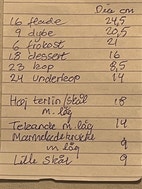 Dia cm
16 flade 24,5
9 dybe 20,5
6 frokost 21
18 dessert 16
23 kop 8,5
24 underkop 14
Høj terrin/skål 18
m. låg
Tekande m. låg 14
Marmeladekrukke 9
m låg
Lille skål 9